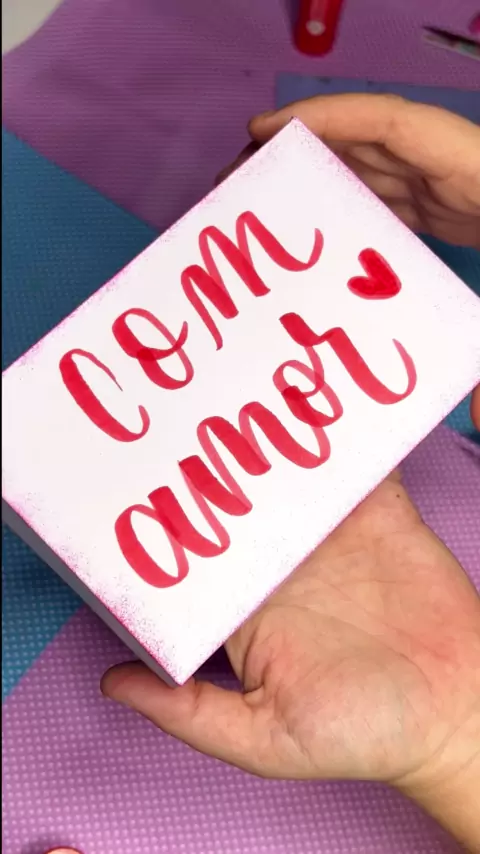 com
amor